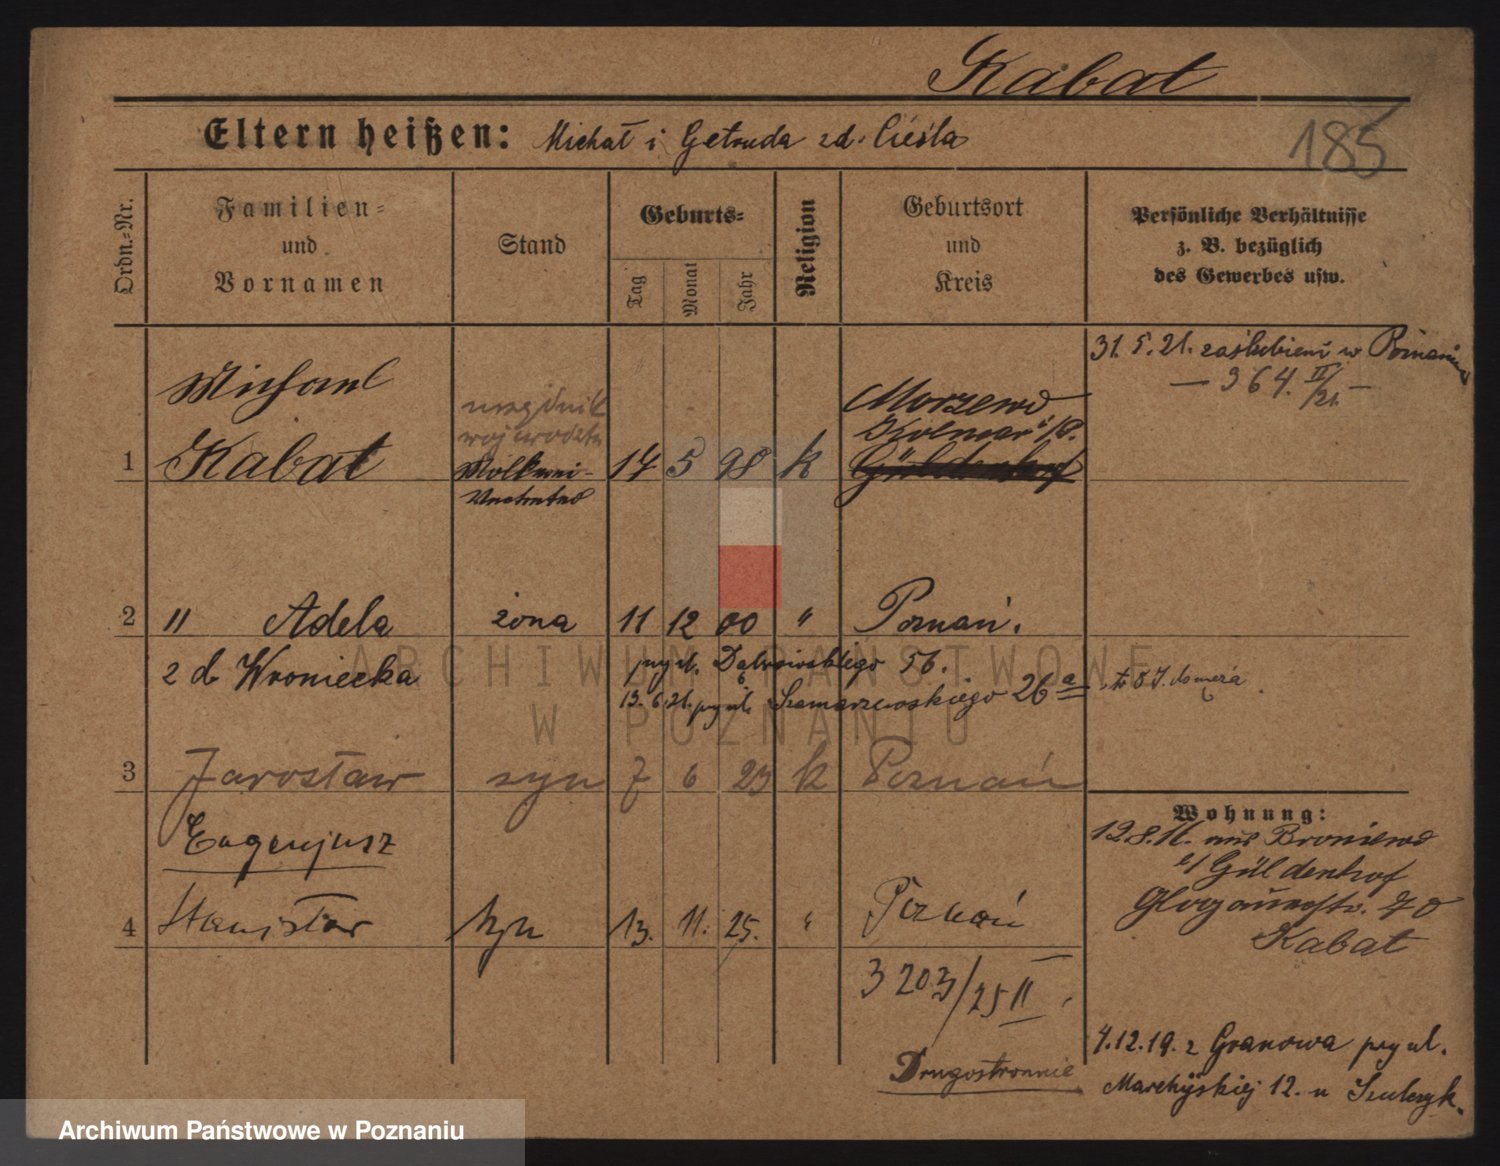 Kabat
Eltern heißen: Michał i Getruda zd. Cieśla
185
Ordn.-Nr.
Familien-
und
Vornamen
Stand
Geburts-
Tag
Monat
Jahr
Religion
Geburtsort
und
Kreis
Persönliche Verhältnisse
z. B. bezüglich
des Gewerbes usw.
31. 5. 21. zaślubieni w Poznaniu
— 364. II/21. —
Michael
urzędnik
wojewodztw
Morzewo
Kolmar i/P.
1 Kabat Molkerei- 14 5 98 k Güldenhof
2 " Adela żona 11 12 00 " Poznań.
zd Wroniecka przy ul. Dąbrowskiego 56.
13. 6. 21. przy ul. Szamarzewskiego 26a
3 Jarosław syn 7 6 23 k Poznań
Eugenjusz
4 Stanisław syn 13. 11. 25. " Poznań
3203/25 II
Drugostronnie
Wohnung:
12.8.16. aus Broniewo
b/ Güldenhof
Glogauerstr. 70
Kabat
4.12.19. z Granowa przy ul.
12. u Szulczyk.
ARCHIWUM PAŃSTWOWE
W POZNANIU
Archiwum Państwowe w Poznaniu